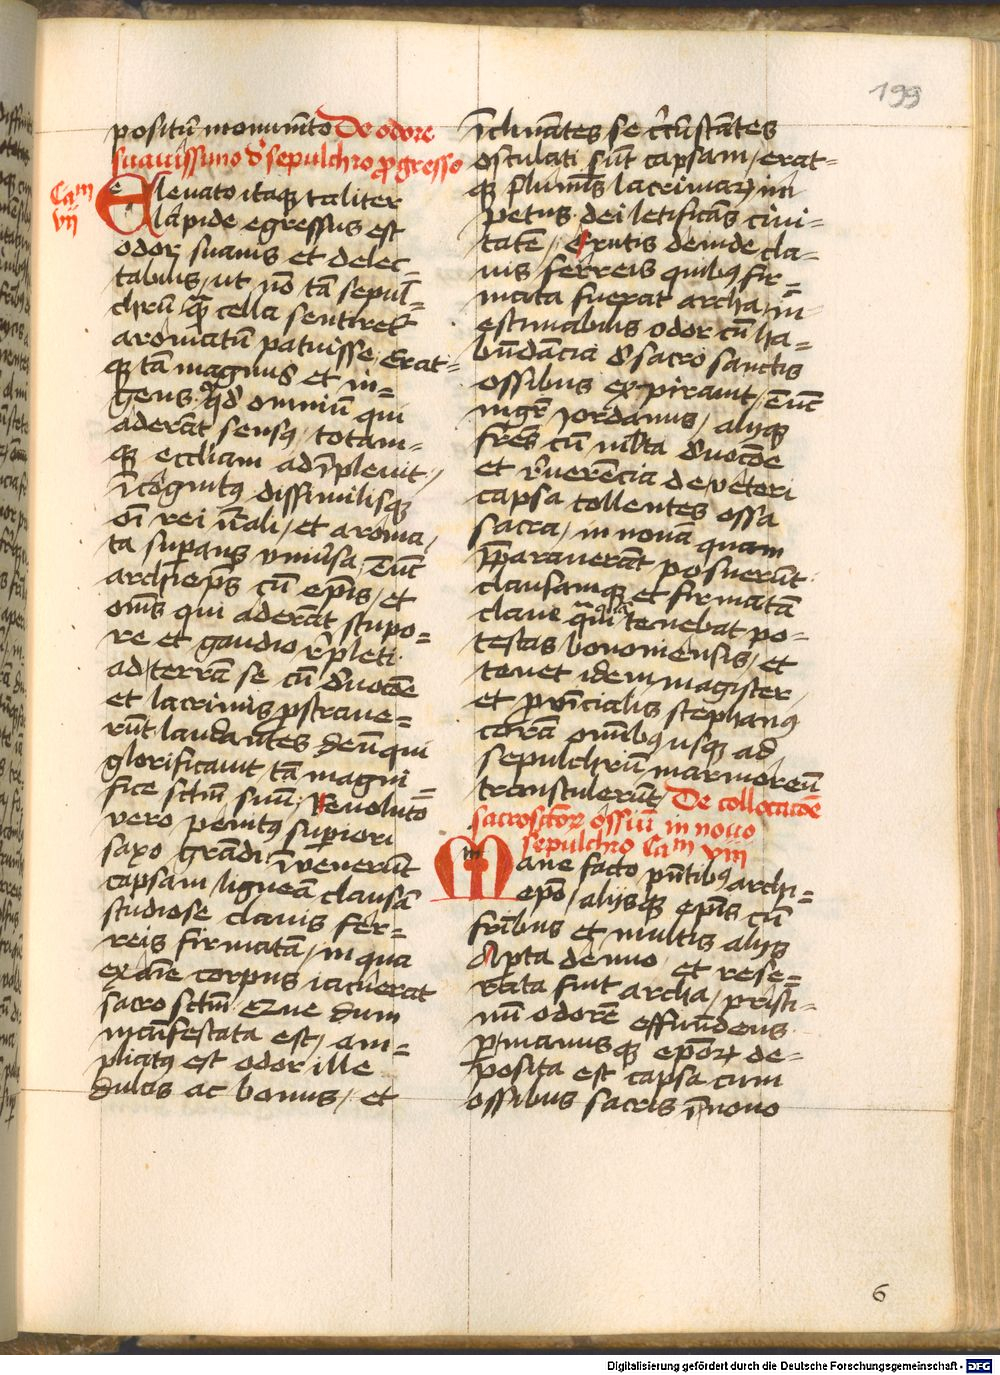 199
positū monumēto De odore
suauissimo d̓ sepulchro ꝓgresso
Caᵐ vij
Eleuato itaqꝫ taliter
lapide egressus est
odor suauis et delec-
tabilis, ut nō tā sepul-
chrū qᷓ cella sentiret᷑
aromatū patuisse, Erat-
qꝫ tam magnus et in-
gens qd̓ omniū qui
aderāt sensꝰ, totam-
qꝫ eccliam adīpleuit,
īcognitꝰ dissimilisqꝫ
oī rei nāli, et aroma,
ta suꝑans vniūsa, Tūc
archieꝑs cū eꝑis, et
oīns qui aderāt stupo-
re et gaudio r̄pleti
ad terrā se cū d̓uocōe
et lacrimis ꝓstraue-
rūt laudantes deū qui
glorificauit tā magni-
fice sctm̄ suū, Reuoluto
vero penitꝰ suꝑiori
saxo grādi īvenerūt
capsam ligneā clausā
studiose clauis fer-
reis firmatā, in qua
ex dīe corpus iacuerat
sacro sctm̄
manifestata est, am-
pliatꝰ est odor ille
dulcis ac bonus, et
īclinātes se cͥcūstātes
osculati sūt capsam, erat-
qꝫ lacrimaꝝ im
petus dei letificās ciui-
tatē, Exutis deinde cla-
uis ferreis quibꝰ fir-
mata fuerat archa, in-
estimabilis odor cū ha-
būdācia d̓ sacro sanctis
ossibus expirauit, Tūc
mgr̄ Jordanus, alijqꝫ
fr̄es cū mlta d̓uocōe
et r̄uerēcia de veteri
capsa tollentes ossa
sacra, in nouā quam
p̄parauerāt posuerūt
clausamqꝫ et firmatā
claue tenebat po-
testas bononiensis, et
tenet idem magister,
et ꝓvīcialis stephanꝰ
corā omībꝰ usqꝫ ad
sepulchrū marmoreū
transtulerūt, De collocacōe
sacrosctoꝝ ossiū in nouo
sepulchro Caᵐ viij
Mane facto pn̄tibꝰ archi-
epo, alijsqꝫ epīs cū
fr̄ibus et multis alijs
Apta denuo et rese-
rata fuit archa, pristi-
nū odorē effūdens
ꝑ manusqꝫ epoꝝ de-
posita est capsa cum
ossibus sacris ī nouo
6
Digitalisierung gefördert durch die Deutsche Forschungsgemeinschaft - DFG